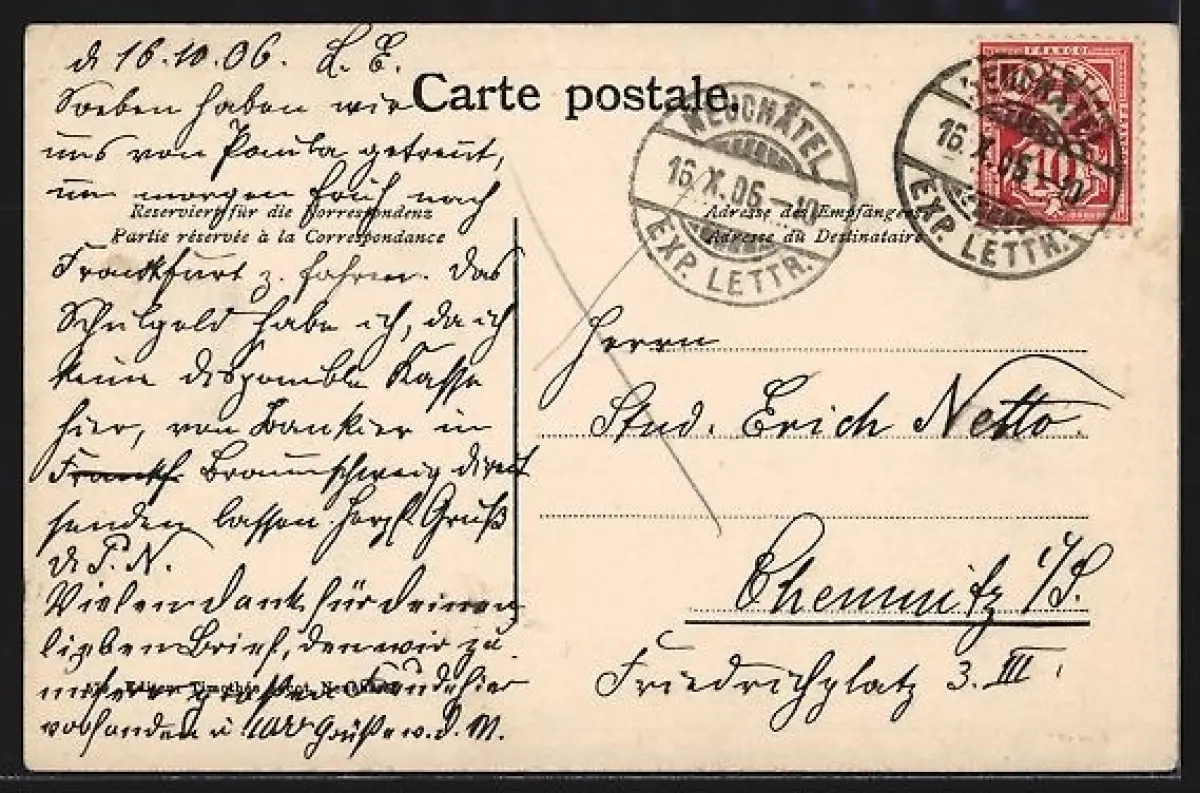 d 16.10.06. L. E.
Soeben haben wir
uns von Paula getrennt,
um morgen früh nach
Frankfurt z. fahren. Das
Schulgeld habe ich, da ich
keine disponible Kasse
hier, von Bankier in
Frankf. Braunschweig direct
senden lassen. Herzl. Gruß
d. P. N.
Vielen Dank für deinen
lieben Brief, den wir zu
unserer grossen Freude hier
vorfanden u. 1000 Grüße v. d. M.
Carte postale.
Reserviert für die Korrespondenz
Partie réservée à la Correspondance
Adresse des Empfängers
Adresse du Destinataire
NEUCHÂTEL
16.X.06.-10
EXP. LETTR.
NEUCHÂTEL
16.X.06.-10
EXP. LETTR.
FRANCO
10
Herrn
Stud. Erich Netto.
Chemnitz i/S.
Friedrichplatz 3. III.